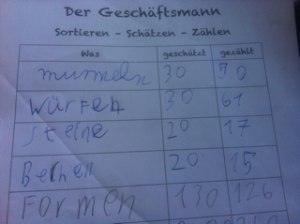 Der Geschäftsmann
Sortieren - Schätzen - Zählen
Was geschätzt gezählt
murmeln 30 70
Würfel 30 61
Steine 20 17
20 15
Formen 130 126